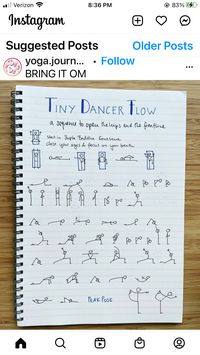 Verizon 8:36 PM 83%
Instagram
Suggested Posts Older Posts
yoga.journ... • Follow
BRING IT OM
TINY DANCER FLOW
a sequence to open the hips and the frontline
start in Supta Baddha Konasana
close your eyes & focus on your breath
PEAK POSE